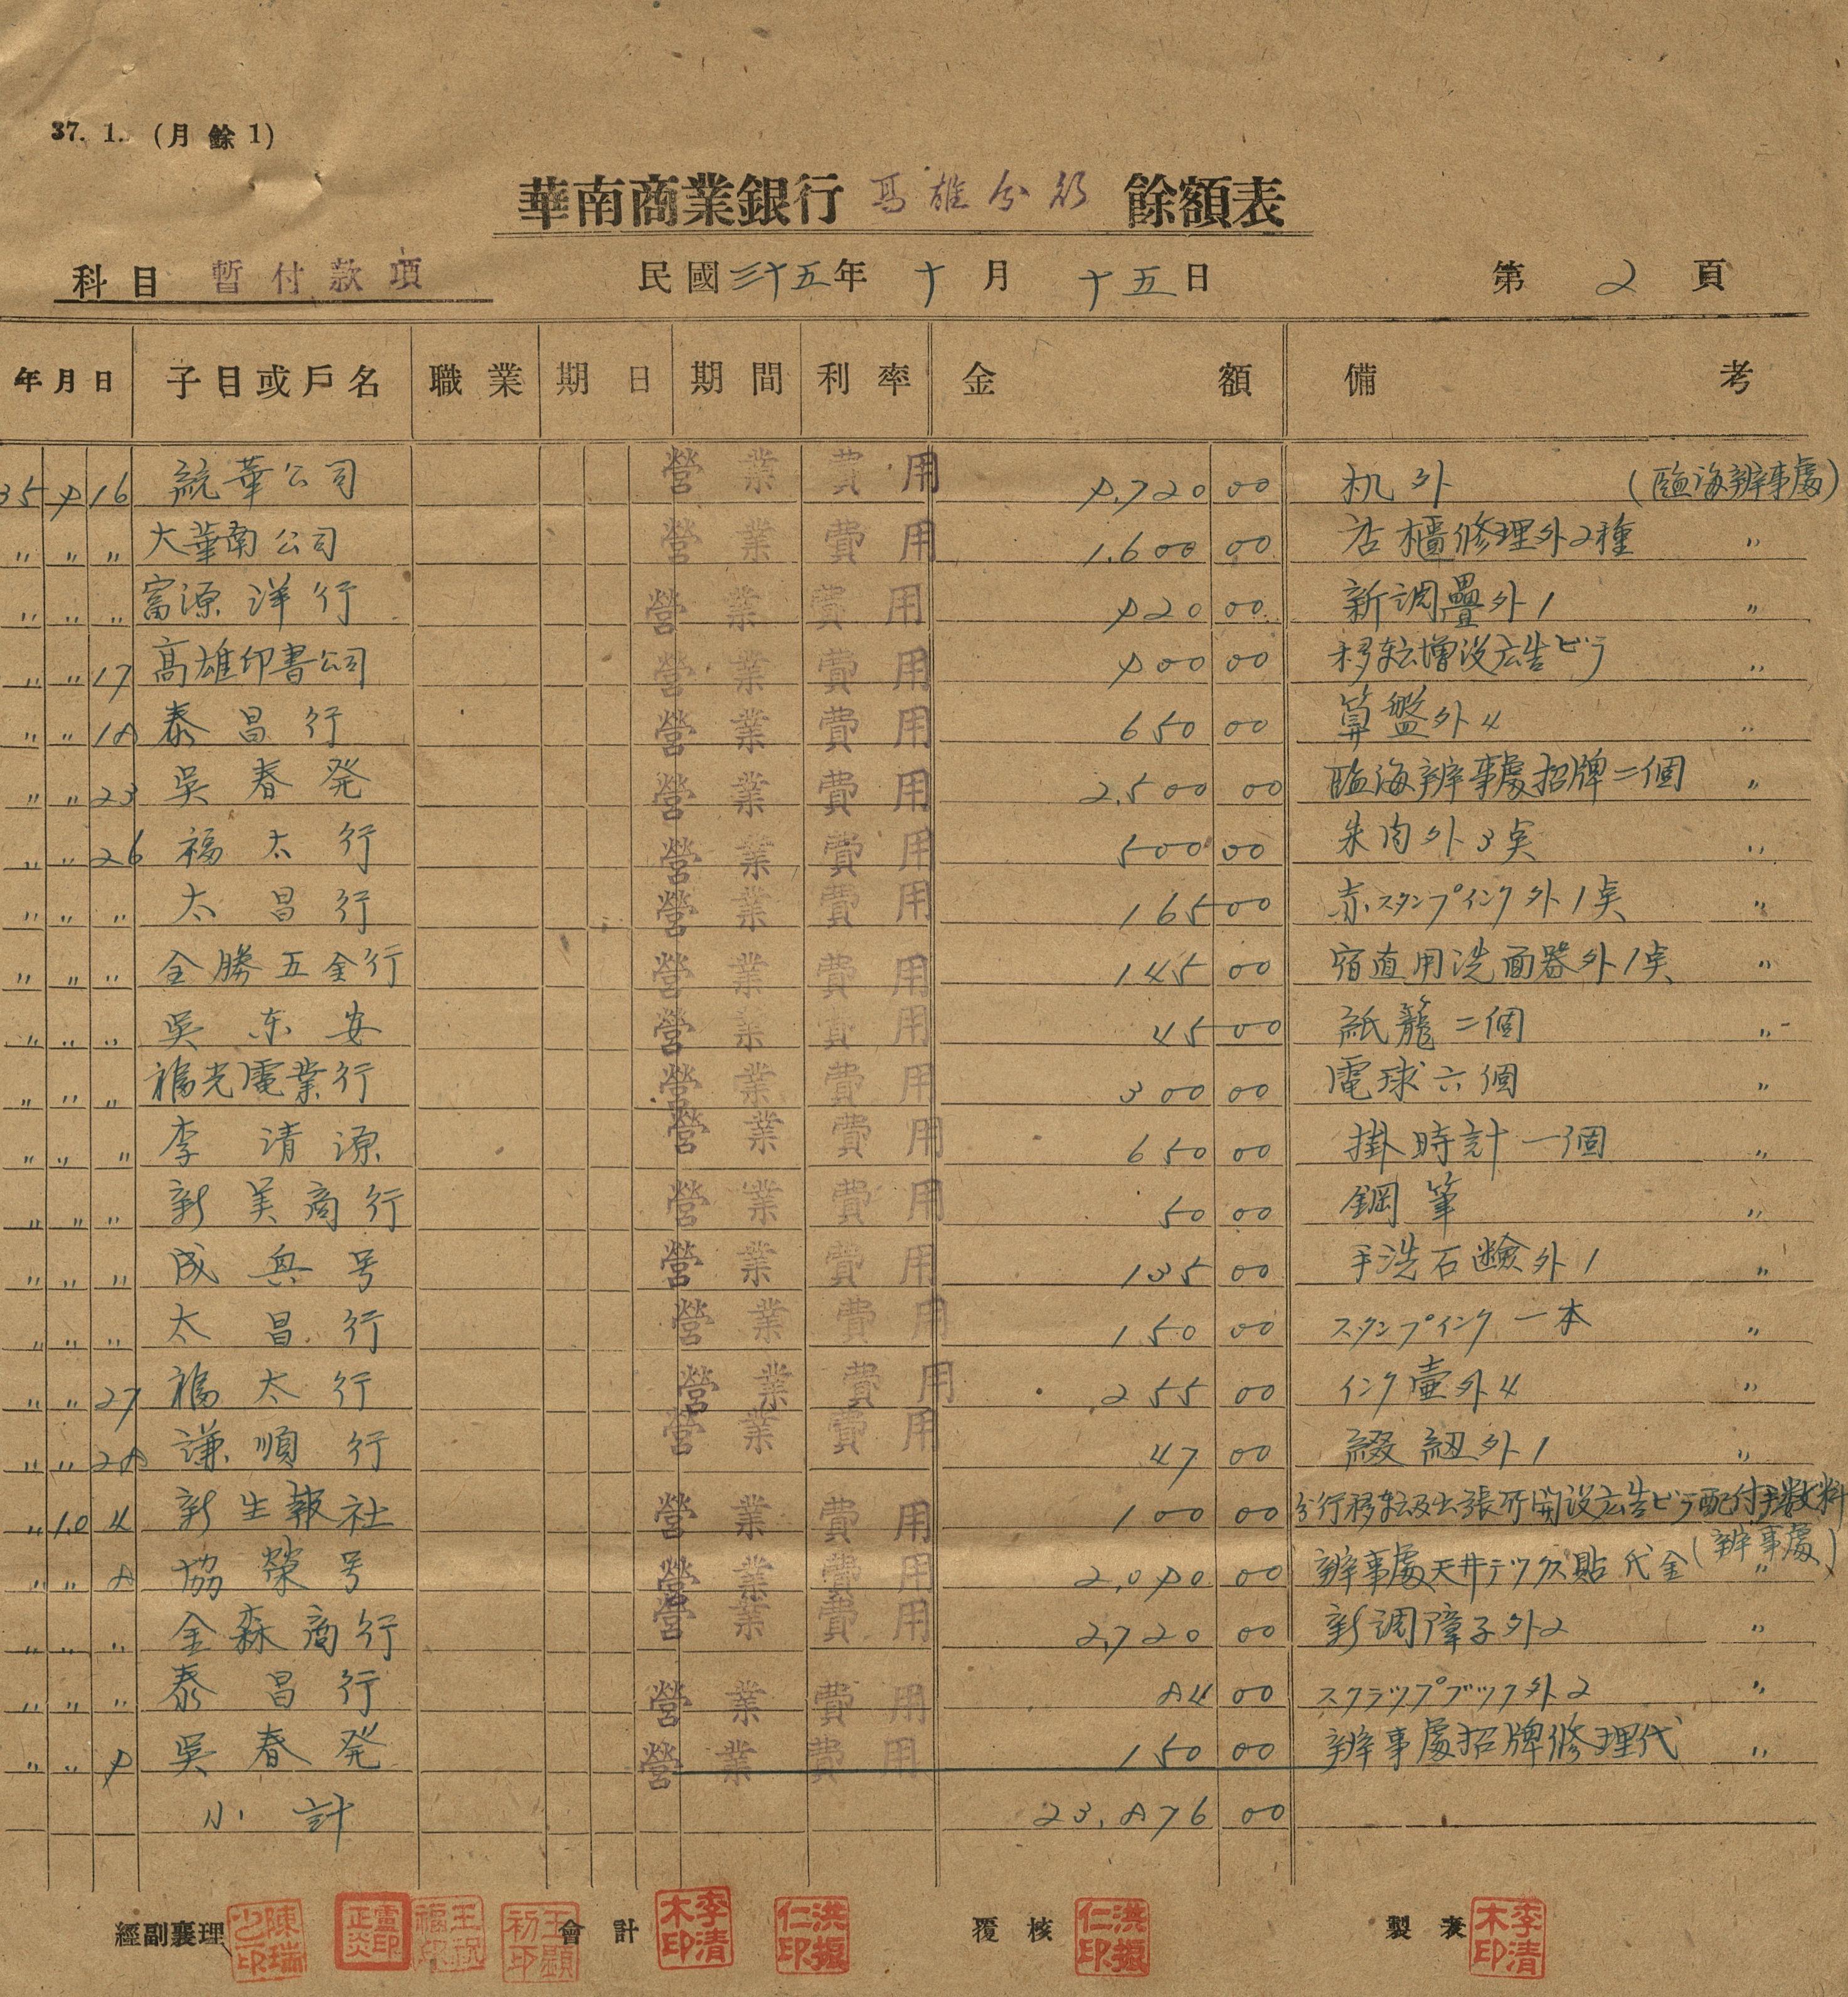 37. 1. (月餘1)
華南商業銀行 高雄分行 餘額表
科目 暫付款項 民國三十五年十月十五日 第2頁
年月日 子目或戶名 職業 期日 期間 利率 金額 備考
35 9 16 統華公司 營業費用 9,720 00 机外 (臨海辦事處)
〃 〃 〃 大華南公司 營業費用 1,600 00 店櫃修理外2種 〃
〃 〃 〃 富源洋行 營業費用 920 00 新調疊外1 〃
〃 〃 17 高雄印書公司 營業費用 900 00 移転增設広告ビラ 〃
〃 〃 18 泰昌行 營業費用 650 00 算盤外4 〃
〃 〃 23 吳春発 營業費用 2,500 00 臨海辦事處招牌二個 〃
〃 〃 26 福太行 營業費用 500 00 朱肉外3奌 〃
〃 〃 〃 太昌行 營業費用 165 00 赤スタンプインク外1奌 〃
〃 〃 〃 全勝五金行 營業費用 145 00 宿直用洗面器外1奌 〃
〃 〃 〃 吳东安 營業費用 45 00 紙籠二個 〃
〃 〃 〃 福光電業行 營業費用 300 00 電球六個 〃
〃 〃 〃 李清源 營業費用 650 00 掛時計一個 〃
〃 〃 〃 新美商行 營業費用 50 00 鋼筆 〃
〃 〃 〃 成興号 營業費用 135 00 手洗石鹸外1 〃
〃 〃 〃 太昌行 營業費用 150 00 スタンプインク一本 〃
〃 〃 27 福太行 營業費用 255 00 インク壷外4 〃
〃 〃 28 謙順行 營業費用 47 00 綴紐外1 〃
〃 10 4 新生報社 營業費用 100 00 分行移転及出張所開設広告ビラ配付手数料 (辦事處)
〃 〃 8 協榮号 營業費用 2,090 00 辦事處天井テックス貼代金 〃
〃 〃 〃 金森商行 營業費用 2,720 00 新調障子外2 〃
〃 〃 〃 泰昌行 營業費用 84 00 スクラップブック外2 〃
〃 〃 9 吳春発 營業費用 150 00 辦事處招牌修理代 〃
小計 23,876 00
經副襄理 會計 李清木印 洪振仁印 覆核 洪振仁印 製表 李清木印